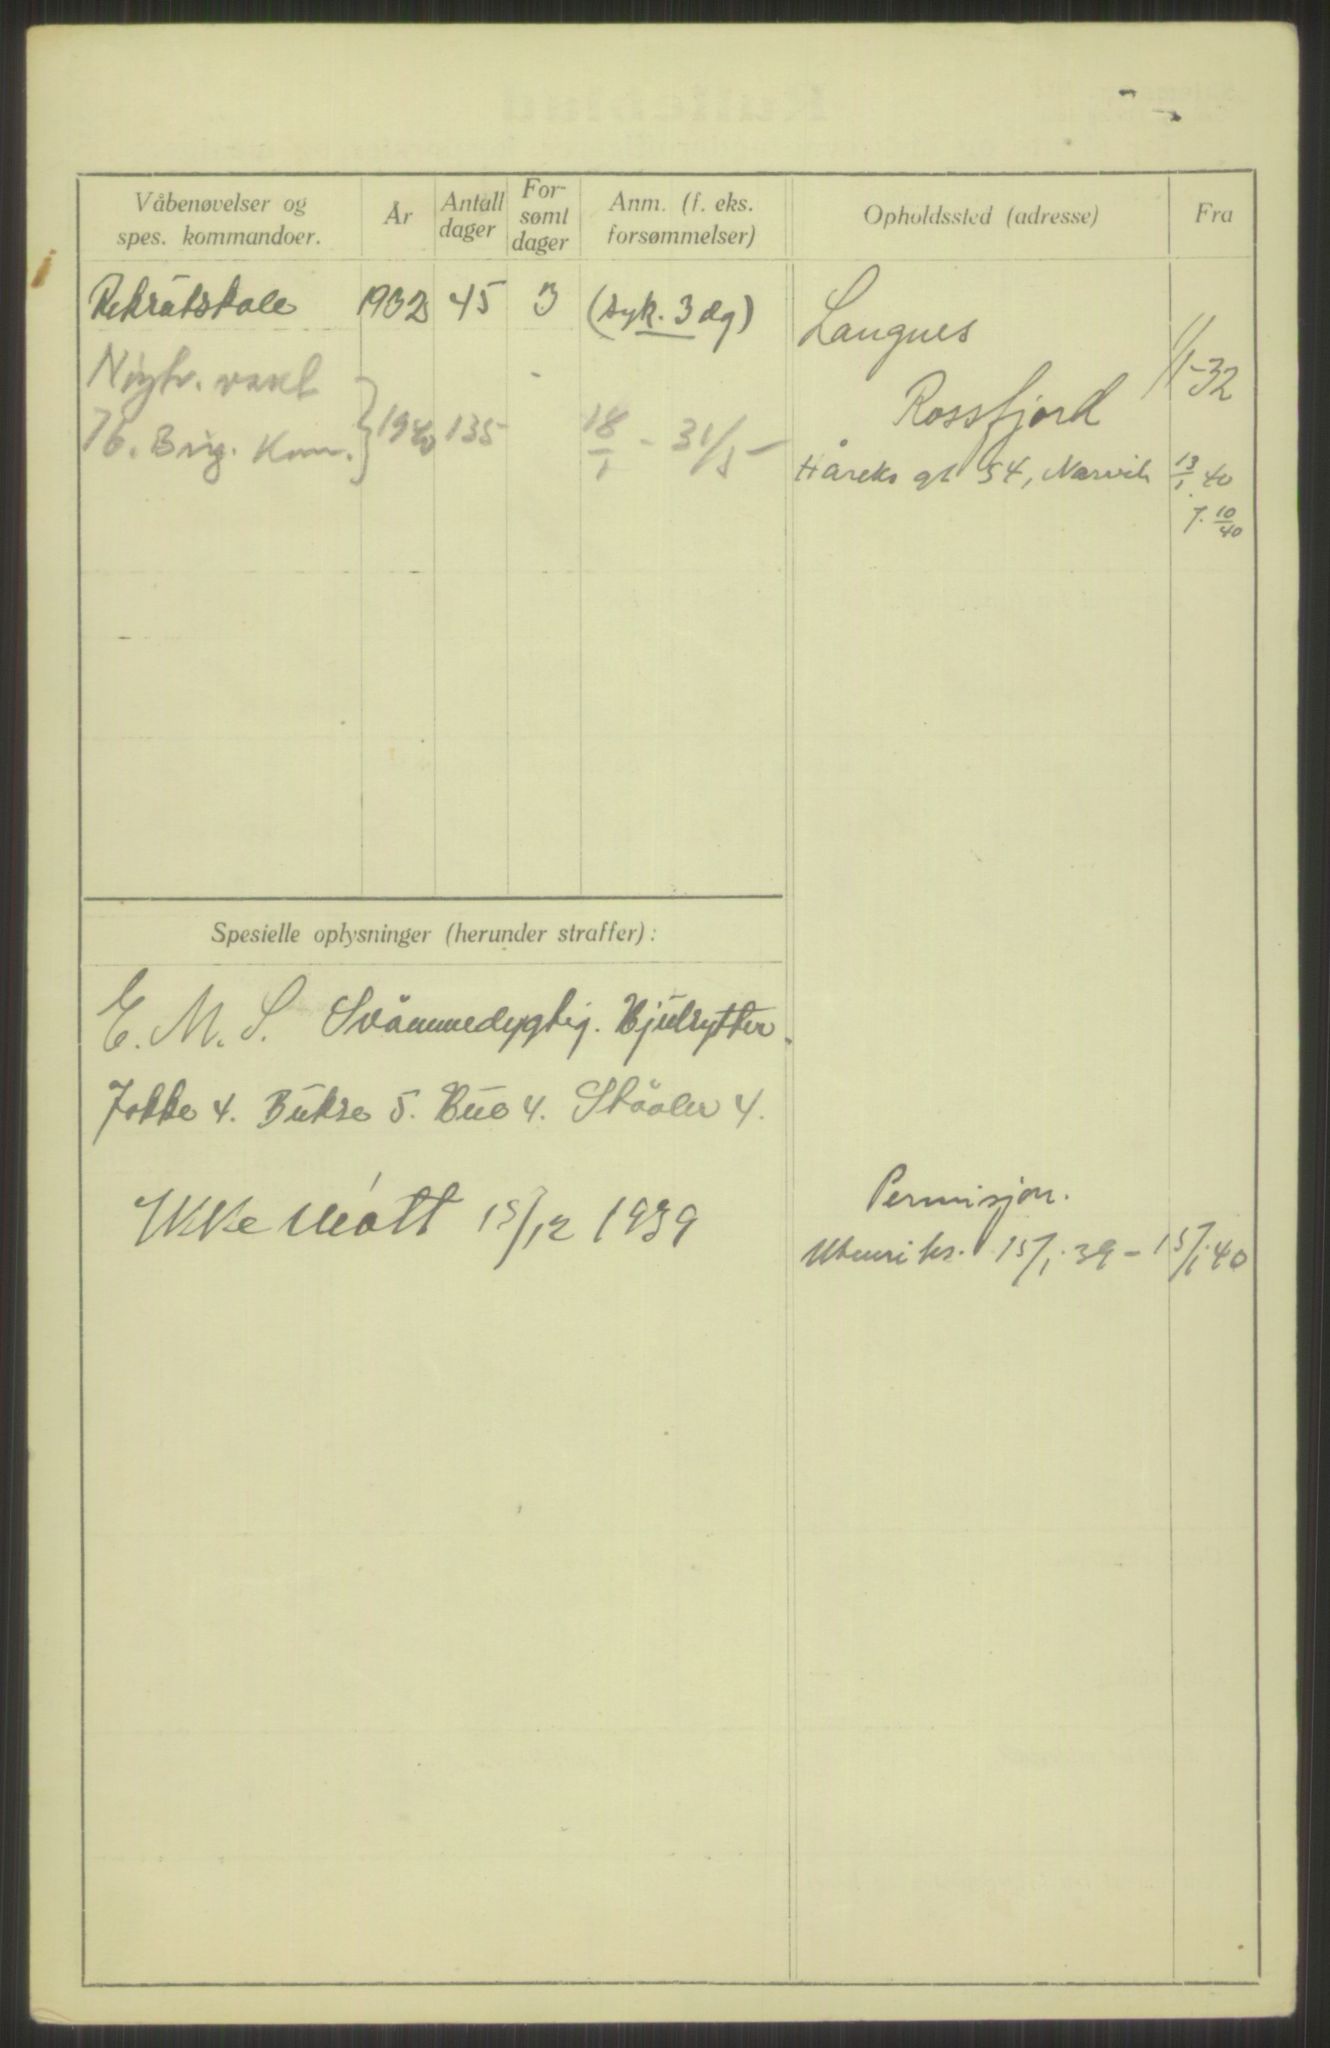 Våbenøvelser og
spes. kommandoer.
År
Antall
dager
For-
sømt
dager
Anm. (f. eks.
forsømmelser)
Opholdssted (adresse)
Fra
Rekrutskole 1932 45 3 (syk. 3 dg)
Langnes
Rossfjord
1/1-32
Nøytr. vakt
}1940 135 18/1 - 31/5
Håreks gt 54, Narvik 13/1 40
7. 10/40
Spesielle oplysninger (herunder straffer):
E. M. S. Svømmedygtig. Hjulrytter.
Jakke 4. Bukse 5. Hue 4. Støvler 4.
Ikke møtt 15/12 1939
Permisjon.
Utenriks. 15/1.39 - 15/1.40